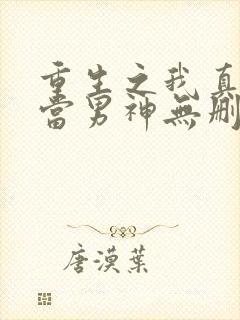 重生之我真
當男神無刪
唐漠葉